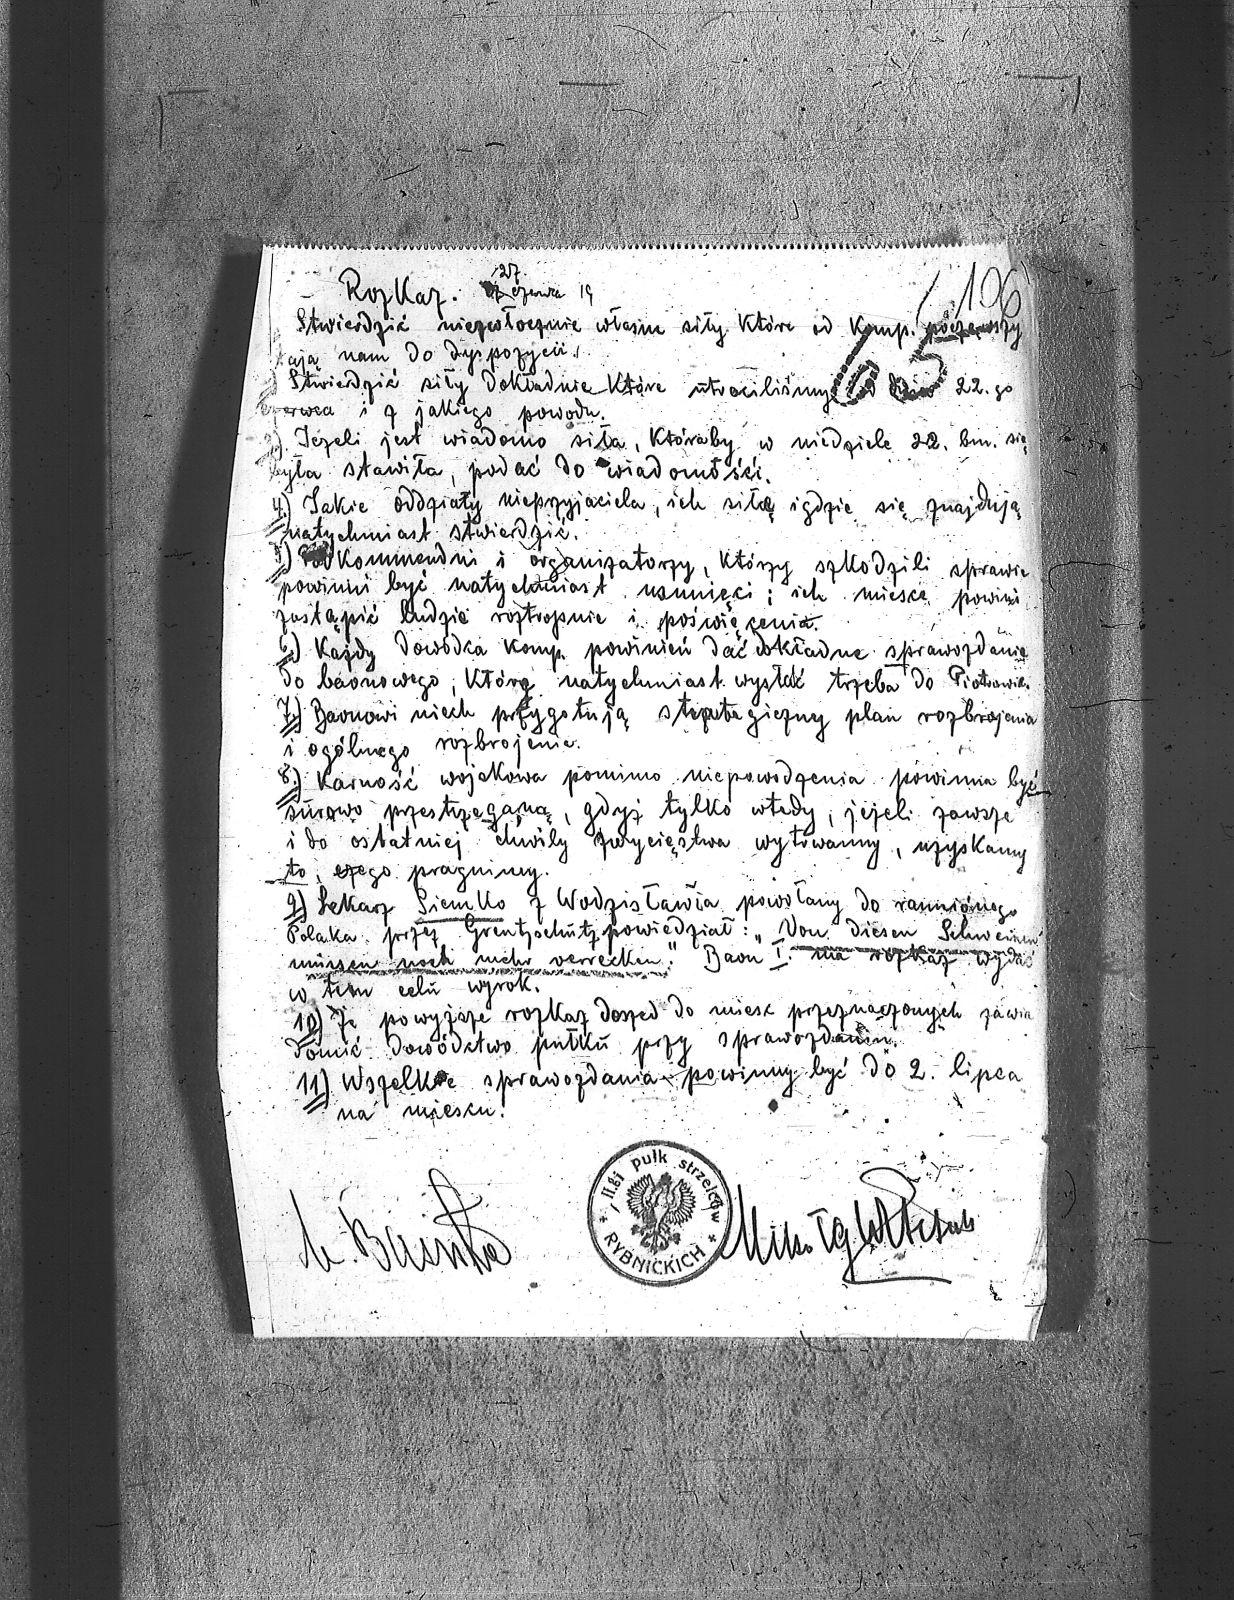 106
27.
Rozkaz. czerwca 19
65
Stwierdzić niezwłocznie własne siły które od Komp. począwszy
ają nam do dyspozycii.
Stwierdzić siły dokładnie które utraciliśmy 22.go
czerwca i z jakiego powodu.
3) Jeżeli jest wiadomo siła, któraby w niedziele 22. bm. się
była stawiła, podać do wiadomości.
4) Jakie oddziały nieprzyjaciela, ich siłę i gdzie się znajdują
natychmiast stwierdzić.
5) Kommendni i organizatorzy, którzy szkodzili sprawie
powinni być natychmiast usunięci; ich miesce powini
zastąpić ludzie roztropnie i poświęcenia.
6) Każdy dowódca komp. powinień dać dokładne sprawozdanie
do baonowego, którę natychmiast wysłać trzeba do Piotrowic.
7) Baonowi niech przygotują strategiczny plan rozbrojenia
i ogólnego rozbrojenie.
8) Karność wojskowa pomimo niepowodzenia powinna być
surowo przestrzeganą, gdyż tylko wtedy, jeżeli zawsze
i do ostatniej chwily zwycięstwa wytrwamy, uzyskamy
to, czego pragnimy.
9) Lekarz Siemko z Wodzisławia powołany do rannionego
Polaka przez Grentzschutz powiedział: „Von diesen Schweinen
müssen noch mehr verrecken." Baon I. ma rozkaz wydać
w tem celu wyrok.
10) Że powyższe rozkaz doszed do miesc przeznaczonych zawia
domić dowództwo pułku przy sprawozdaniu.
11) Wszelkie sprawozdania powinny być do 2. lipca
na miescu.
II.gi pułk strzelców
RYBNICKICH